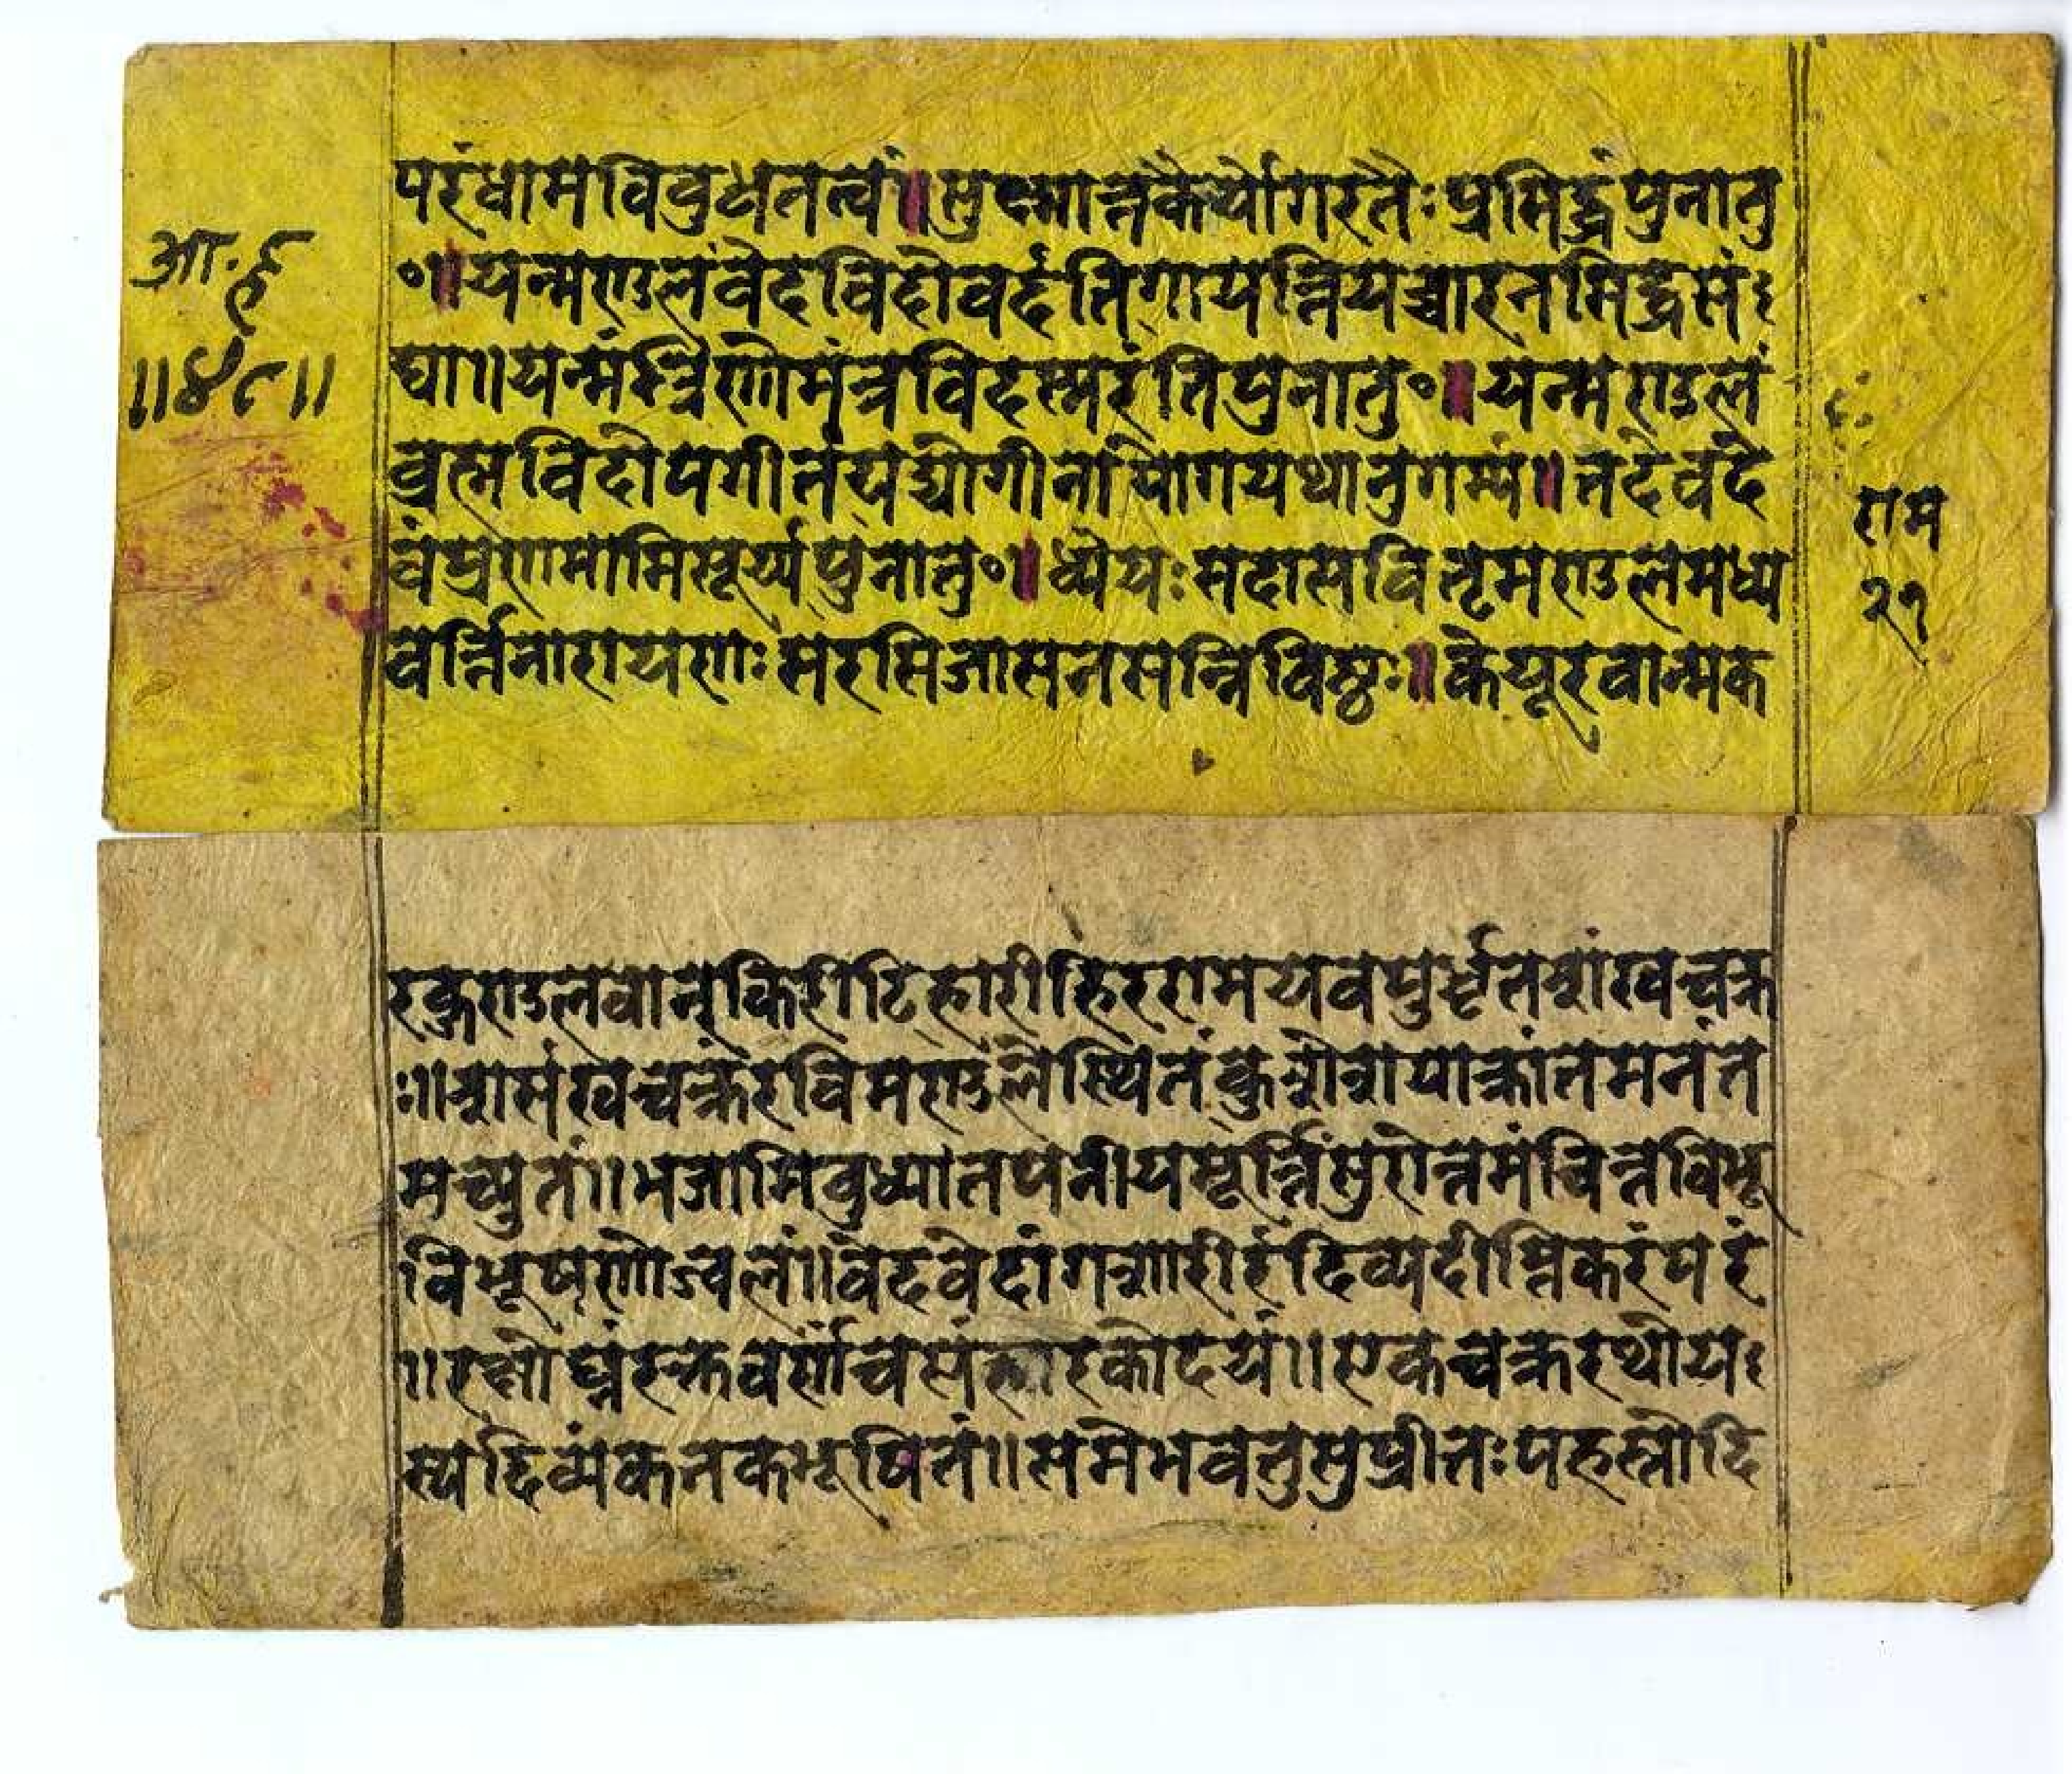 परंधामविवुधतत्वं॥सुक्ष्मान्तकैर्योगरतैःप्रसिद्धंपुनातु
आ॰हृ
॰॥यन्मण्डलंवेदविदोवदंतिगायन्तियच्चारनसिद्धसंः
॥४८॥
घा॥यन्मंत्रिणोमंत्रविदस्मरंतिपुनातु॰॥यन्मण्डलं
व्रह्मविदोपगीतंयद्योगीनांयोगयथानुगम्यं॥तदेवंदे
राम
वंप्रणमामिसूर्य्यपुनातु॰॥ध्येयःसदासवितृमण्डलमध्य
२१
वर्त्तिनारायणःसरसिजासनसन्निविष्ठः॥केयूरवान्मक
रकुण्डलवान्किरीटिहारीहिरण्मयवपुर्धृतशंखचक्र
ः॥शसंखचक्रंरविमण्डलेस्थितंकुशेशयाक्रांतमनंत
मच्युतं॥भजामिवुध्यातपनीयमूर्त्तिंसुरोत्तमंचित्रविभू
विभूषणोज्वलं॥वेदवेदांगशरीरंदिव्यदीप्तिकरंपरं
॥रक्षोघ्नंरक्तवर्णंच
॥एकचक्ररथोयः
स्यदिव्यंकनकभूषितं॥समेभवतुसुप्रीतःपह्मस्तोदि